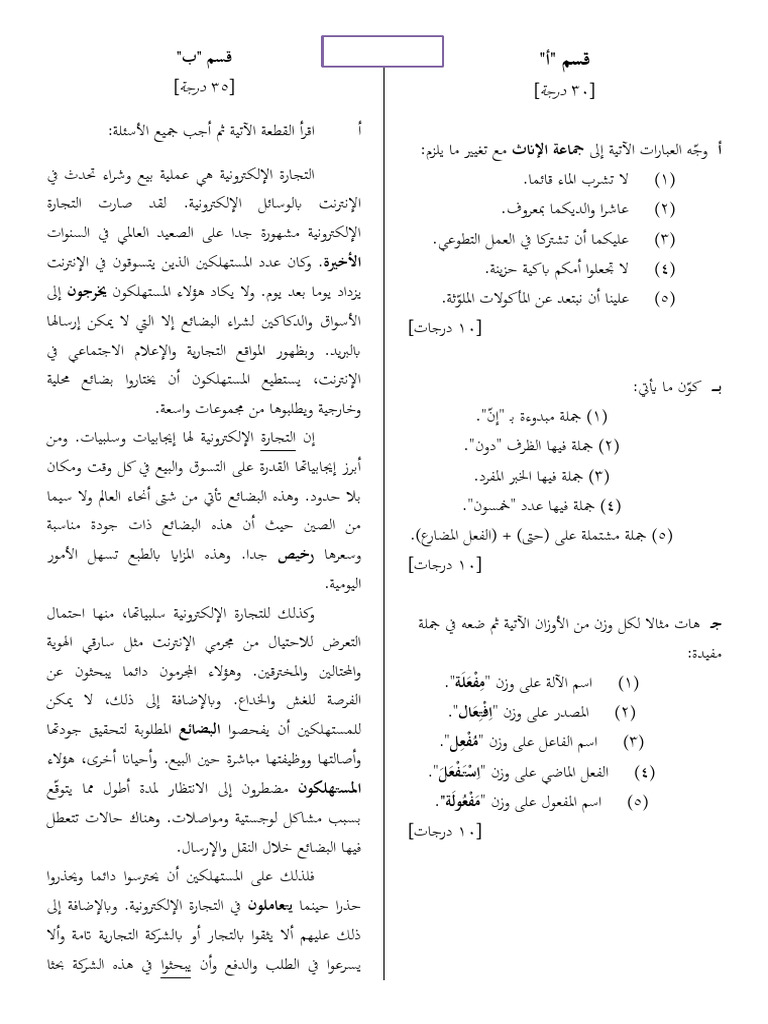 قسم "أ"
[٣٠ درجة]
أ وجّه العبارات الآتية إلى جماعة الإناث مع تغيير ما يلزم:
(١) لا تشرب الماء قائما.
(٢) عاشرا والديكما بمعروف.
(٣) عليكما أن تشتركا في العمل التطوعي.
(٤) لا تجعلوا أمكم باكية حزينة.
(٥) علينا أن نبتعد عن المأكولات الملوّثة.
[١٠ درجات]
بـ كوّن ما يأتي:
(١) جملة مبدوءة بـ "إنّ".
(٢) جملة فيها الظرف "دون".
(٣) جملة فيها الخبر المفرد.
(٤) جملة فيها عدد "خمسون".
(٥) جملة مشتملة على (حتى) + (الفعل المضارع).
[١٠ درجات]
جـ هات مثالا لكل وزن من الأوزان الآتية ثم ضعه في جملة
مفيدة:
(١) اسم الآلة على وزن "مِفْعَلَة".
(٢) المصدر على وزن "اِفْتِعَال".
(٣) اسم الفاعل على وزن "مُفْعِل".
(٤) الفعل الماضي على وزن "اِسْتَفْعَلَ".
(٥) اسم المفعول على وزن "مَفْعُولَة".
[١٠ درجات]
قسم "ب"
[٣٥ درجة]
أ اقرأ القطعة الآتية ثم أجب جميع الأسئلة:
التجارة الإلكترونية هي عملية بيع وشراء تحدث في
الإنترنت بالوسائل الإلكترونية. لقد صارت التجارة
الإلكترونية مشهورة جدا على الصعيد العالمي في السنوات
الأخيرة. وكان عدد المستهلكين الذين يتسوقون في الإنترنت
يزداد يوما بعد يوم. ولا يكاد هؤلاء المستهلكون يخرجون إلى
الأسواق والدكاكين لشراء البضائع إلا التي لا يمكن إرسالها
بالبريد. وبظهور المواقع التجارية والإعلام الاجتماعي في
الإنترنت، يستطيع المستهلكون أن يختاروا بضائع محلية
وخارجية ويطلبوها من مجموعات واسعة.
إن التجارة الإلكترونية لها إيجابيات وسلبيات. ومن
أبرز إيجابياتها القدرة على التسوق والبيع في كل وقت ومكان
بلا حدود. وهذه البضائع تأتي من شتى أنحاء العالم ولا سيما
من الصين حيث أن هذه البضائع ذات جودة مناسبة
وسعرها رخيص جدا. وهذه المزايا بالطبع تسهل الأمور
اليومية.
وكذلك للتجارة الإلكترونية سلبياتها، منها احتمال
التعرض للاحتيال من مجرمي الإنترنت مثل سارقي الهوية
والمحتالين والمخترقين. وهؤلاء المجرمون دائما يبحثون عن
الفرصة للغش والخداع. وبالإضافة إلى ذلك، لا يمكن
للمستهلكين أن يفحصوا البضائع المطلوبة لتحقيق جودتها
وأصالتها ووظيفتها مباشرة حين البيع. وأحيانا أخرى، هؤلاء
المستهلكون مضطرون إلى الانتظار لمدة أطول مما يتوقّع
بسبب مشاكل لوجستية ومواصلات. وهناك حالات تتعطل
فيها البضائع خلال النقل والإرسال.
فلذلك على المستهلكين أن يحترسوا دائما ويحذروا
حذرا حينما يتعاملون في التجارة الإلكترونية. وبالإضافة إلى
ذلك عليهم ألا يثقوا بالتجار أو بالشركة التجارية تامة وألا
يسرعوا في الطلب والدفع وأن يبحثوا في هذه الشركة بحثا